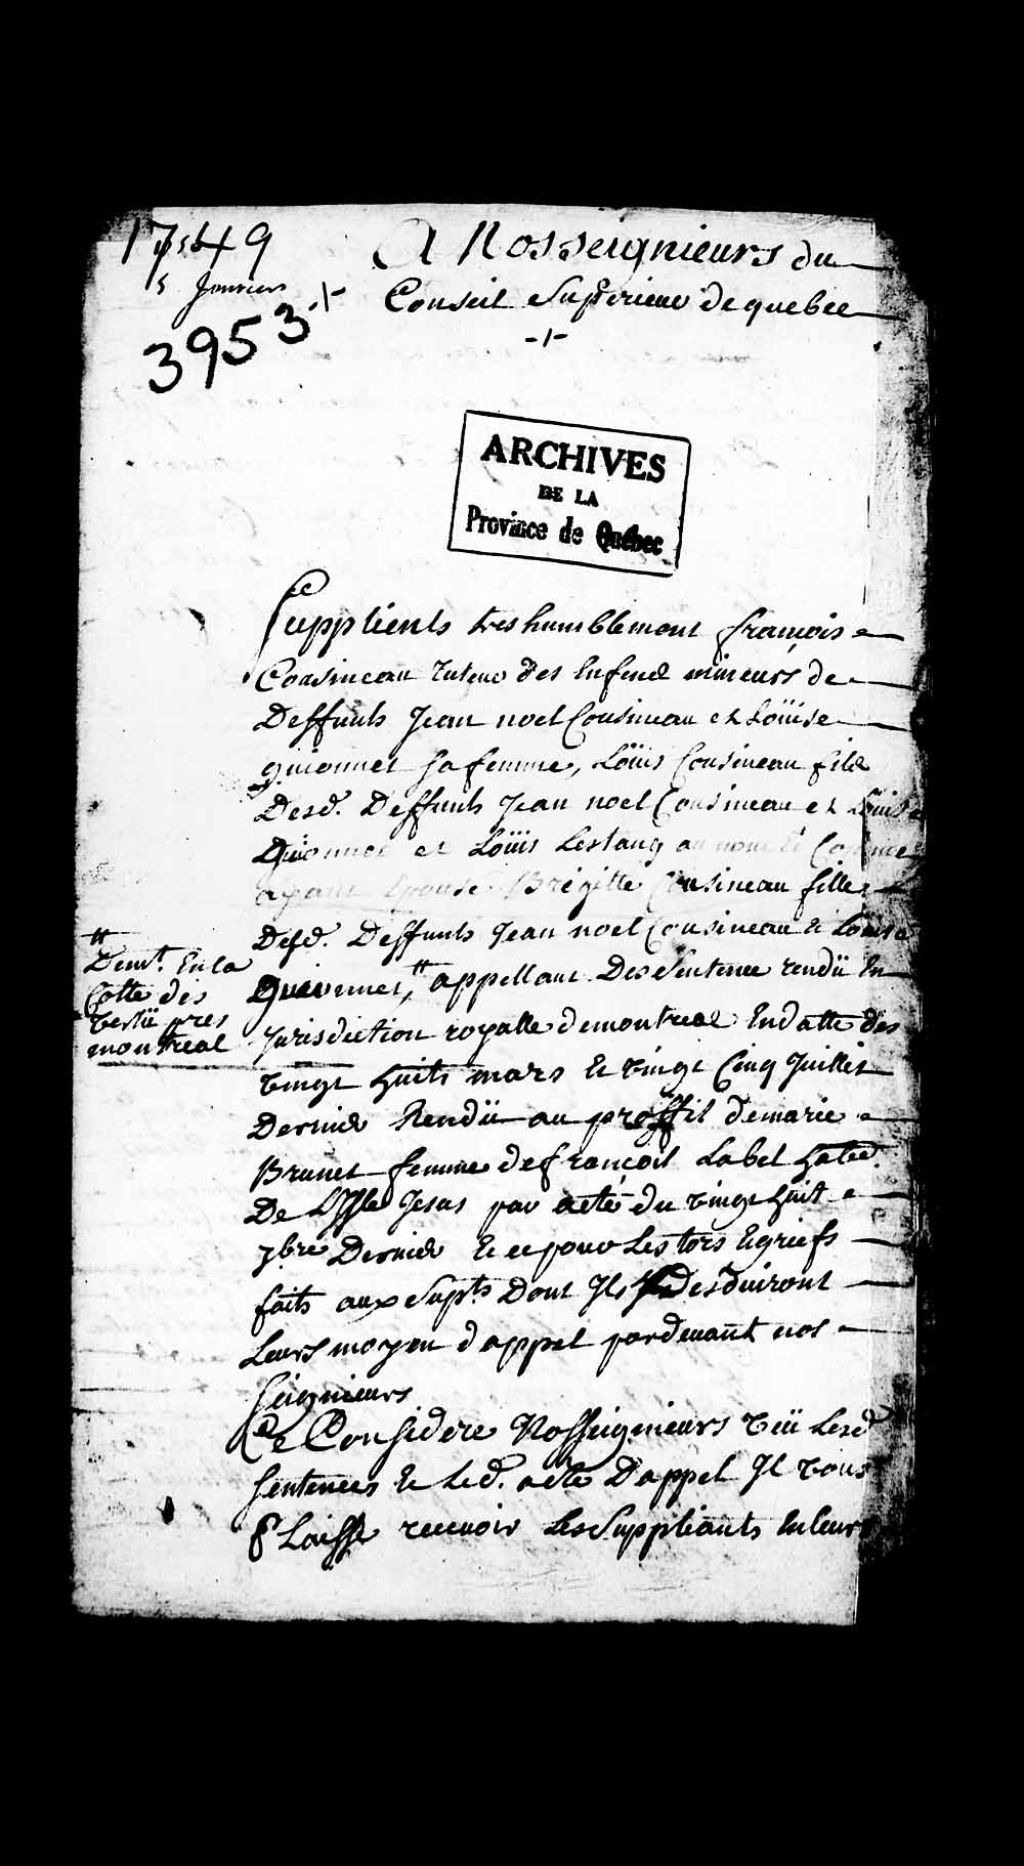 1749
5 Janvier
3953
A Nosseigneurs du
Conseil Superieur de quebec
ARCHIVES
DE LA
Province de Québec
Supplients tres humblement françois
Cousineau Tuteur des Enfens mineurs de
Deffunts Jean noel Cousineau et Loüise
guionnet sa femme, Loüis Cousineau fils
Desd. Deffunts Jean noel Cousineau et Loüise
Guionnet et Loüis Lestang au nom Et Comme
ayant Epousé Brigitte Cousineau fille
Desd. Deffunts Jean noel Cousineau & Louise
Guionnet, # appellant Des Sentence rendü En
Jurisdiction royalle de montreal En datte des
vingt huits mars & vingt Cinq Juillet
Dernier Rendü au proffit de marie
Brunet femme de françois Label
De L'Isle Jesus par acte du vingt huit
7bre Dernier & ce pour Les tors Et griefs
faits aux Supts Dont Ils desduiront
Leurs moyen d'appel pardevant nos
seigneurs
Ce Consideré Nosseigneurs vëu Lesd
sentences & Led. acte D'appel Il vous
Plaisse recevoir Les Suppliants En leurs
#
Demt. En la
Cotte des
vertü pres
montreal